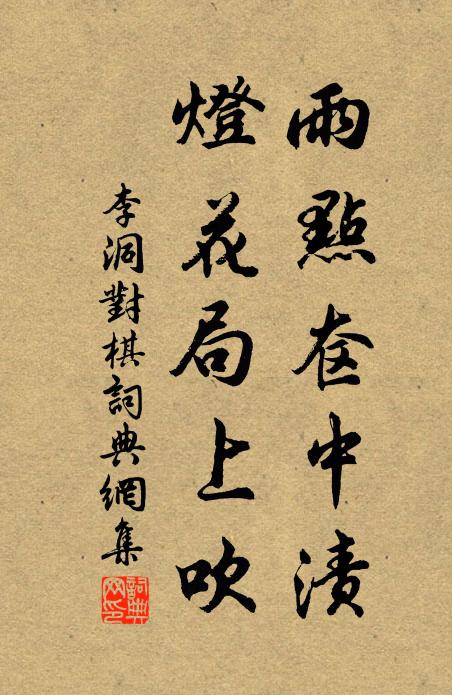 雨點奁中漬
燈花局上吹
李洞對棋詞典網集
詞典网印